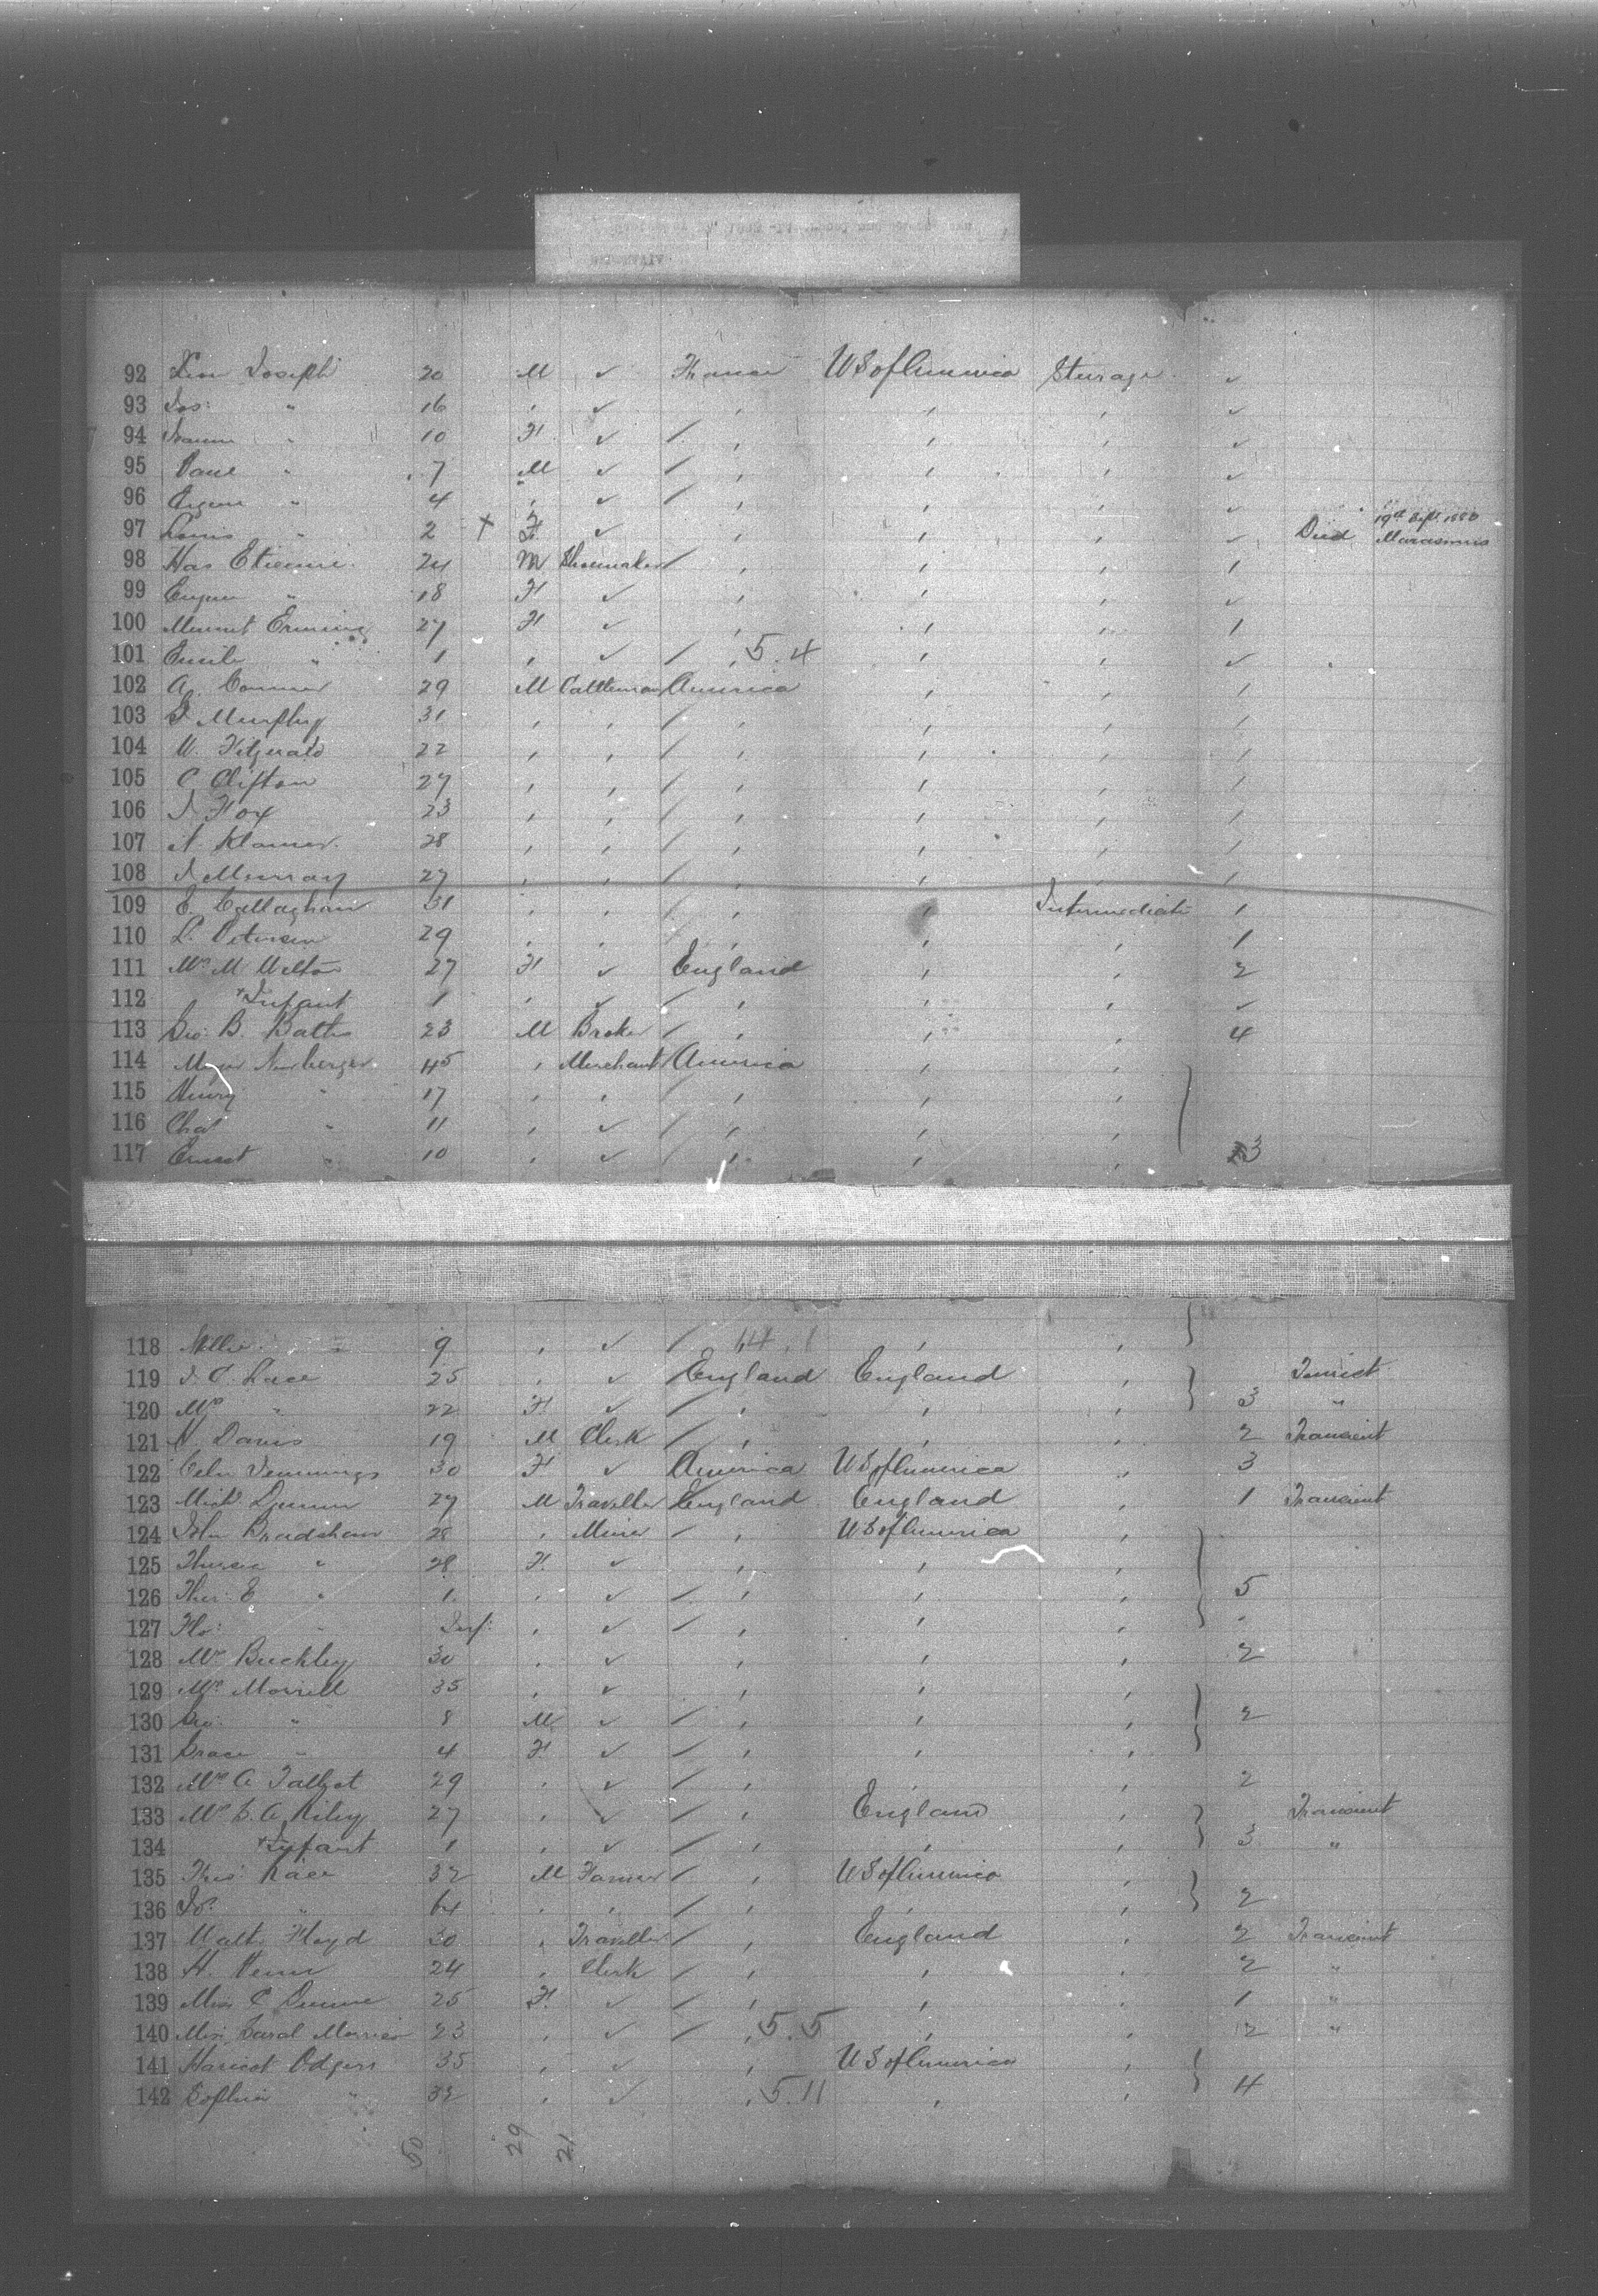 92 Joseph 20 M ✓ France U S of America Steerage ✓
93 Jos: " 16 , ✓ , , , ✓
94 " 10 F ✓ / , , , ✓
95 " 7 M ✓ / , , , ✓
96 " 4 , ✓ / , , , ✓
97 Louis " 2 + F ✓ , , , ✓ Died 19th Sept 1886 Marasmus
98 Etienne 24 M Shoemaker / , , , 1
99 " 18 F ✓ , , , ✓
100 27 F ✓ , , , 1
101 Emile " 1 , ✓ / , 5.4 , , ✓
102 A. Connor 29 M Cattleman America , , 1
103 J Murphy 31 , , / , , , 1
104 W. Fitzgerald 22 , , / , , , 1
105 C Clifton 27 , , / , , , 1
106 J Fox 23 , , / , , , 1
107 28 , , / , , , 1
108 J Murray 27 , , / , , , 1
109 E. Callaghan 31 , , / , , Intermediate 1
110 L. Petersen 29 , , , , , 1
111 Mrs M Melton 27 F ✓ England , , 2
112 + Infant 1 , ✓ / , , , ✓
113 Geo: B. Bates 23 M Broker / , , , 4
114 Newberger 45 , Merchant America , ,
115 Henry " 17 , , / , , ,
116 Chas " 11 , ✓ / , , ,
117 Ernest " 10 , ✓ / , , , 3
118 Nellie " 9 , ✓ / , ,
119 J. C. Lace 25 , ✓ England England , Tourist
120 Mrs " 22 F ✓ / , , , 3 "
121 H. Davis 19 M Clerk / , , , 2 Transient
122 Jennings 30 F ✓ America U S of America , 3
123 Mich 27 M Traveller England England , 1 Transient
124 John Bradshaw 28 , Miner / , U S of America ,
125 Theresa " 28 F ✓ , , ,
126 Ther: E " 1 , ✓ / , , , 5
127 Flo: " Inf: , ✓ / , , ,
128 Mrs Buckley 30 , ✓ , , , 2
129 Mrs Morrell 35 , ✓ , , ,
130 Geo: " 8 M ✓ / , , , 2
131 Grace " 4 F ✓ / , , ,
132 Mrs A Talbot 29 , ✓ / , , , 2
133 Mrs G. A. Riley 27 , ✓ / , England , Transient
134 + Infant 1 , ✓ / , , , 3 "
135 Thos 32 M Farmer / , U S of America ,
136 " 64 , , / , , , 2
137 Walt. Floyd 30 , Traveller / , England , 2 Transient
138 H. 24 , Clerk / , , , 2 "
139 Miss C Dunne 25 F ✓ / , , , 1 "
140 Miss 23 , ✓ / , 5.5 , , 2 "
141 Harriet Odgers 35 , ✓ , U S of America ,
142 Sophia " 32 , ✓ , 5.11 , , 4
50 29 21